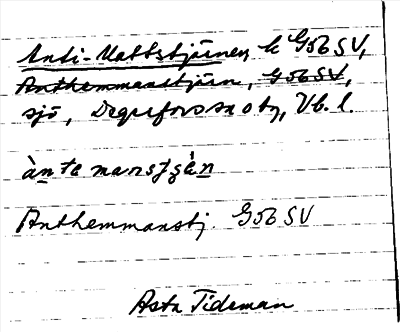 Anti-Mattstjärnen, k G56 SV,
Anthemmanstjärn, G56 SV,
sjö, Degerfors sn o tg, Vb. l.
àn te mansʃæ̀n
Anthemmanstj. G56 SV
Asta Tideman